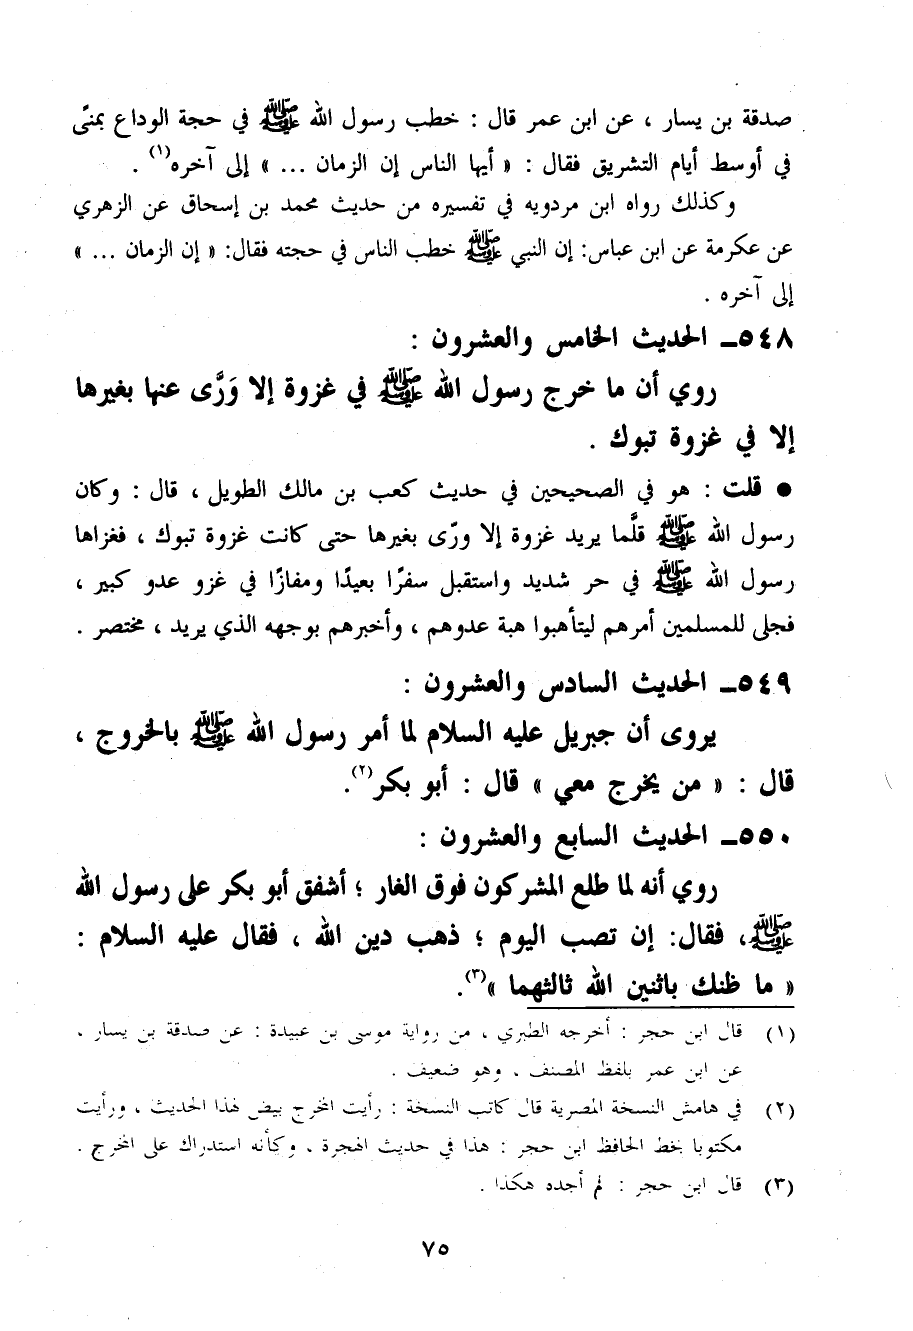 صدقة بن يسار ، عن ابن عمر قال : خطب رسول الله ﷺ في حجة الوداع بمنًى
في أوسط أيام التشريق فقال : « أيها الناس إن الزمان ... » إلى آخره(١) .
وكذلك رواه ابن مردويه في تفسيره من حديث محمد بن إسحاق عن الزهري
عن عكرمة عن ابن عباس: إن النبي ﷺ خطب الناس في حجته فقال: « إن الزمان ... »
إلى آخره .
٥٤٨ـ الحديث الخامس والعشرون :
روي أن ما خرج رسول الله ﷺ في غزوة إلا وَرَّى عنها بغيرها
إلا في غزوة تبوك .
● قلت : هو في الصحيحين في حديث كعب بن مالك الطويل ، قال : وكان
رسول الله ﷺ قلَّما يريد غزوة إلا ورّى بغيرها حتى كانت غزوة تبوك ، فغزاها
رسول الله ﷺ في حر شديد واستقبل سفرًا بعيدًا ومفازًا في غزو عدو كبير ،
فجلى للمسلمين أمرهم ليتأهبوا هبة عدوهم ، وأخبرهم بوجهه الذي يريد ، مختصر .
٥٤٩ـ الحديث السادس والعشرون :
يروى أن جبريل عليه السلام لما أمر رسول الله ﷺ بالخروج ،
قال : « من يخرج معي » قال : أبو بكر(٢).
٥٥٠ـ الحديث السابع والعشرون :
روي أنه لما طلع المشركون فوق الغار ؛ أشفق أبو بكر على رسول الله
ﷺ، فقال: إن تصب اليوم ؛ ذهب دين الله ، فقال عليه السلام :
« ما ظنك باثنين الله ثالثهما »(٣).
(١) قال ابن حجر : أخرجه الطبري ، من رواية موسى بن عبيدة : عن صدقة بن يسار ،
عن ابن عمر بلفظ المصنف ، وهو ضعيف .
(٢) في هامش النسخة المصرية قال كاتب النسخة : رأيت المخرج بيض لهذا الحديث ، ورأيت
مكتوبا بخط الحافظ ابن حجر : هذا في حديث الهجرة ، وكأنه استدراك على المخرج .
(٣) قال ابن حجر : لم أجده هكذا .
٧٥